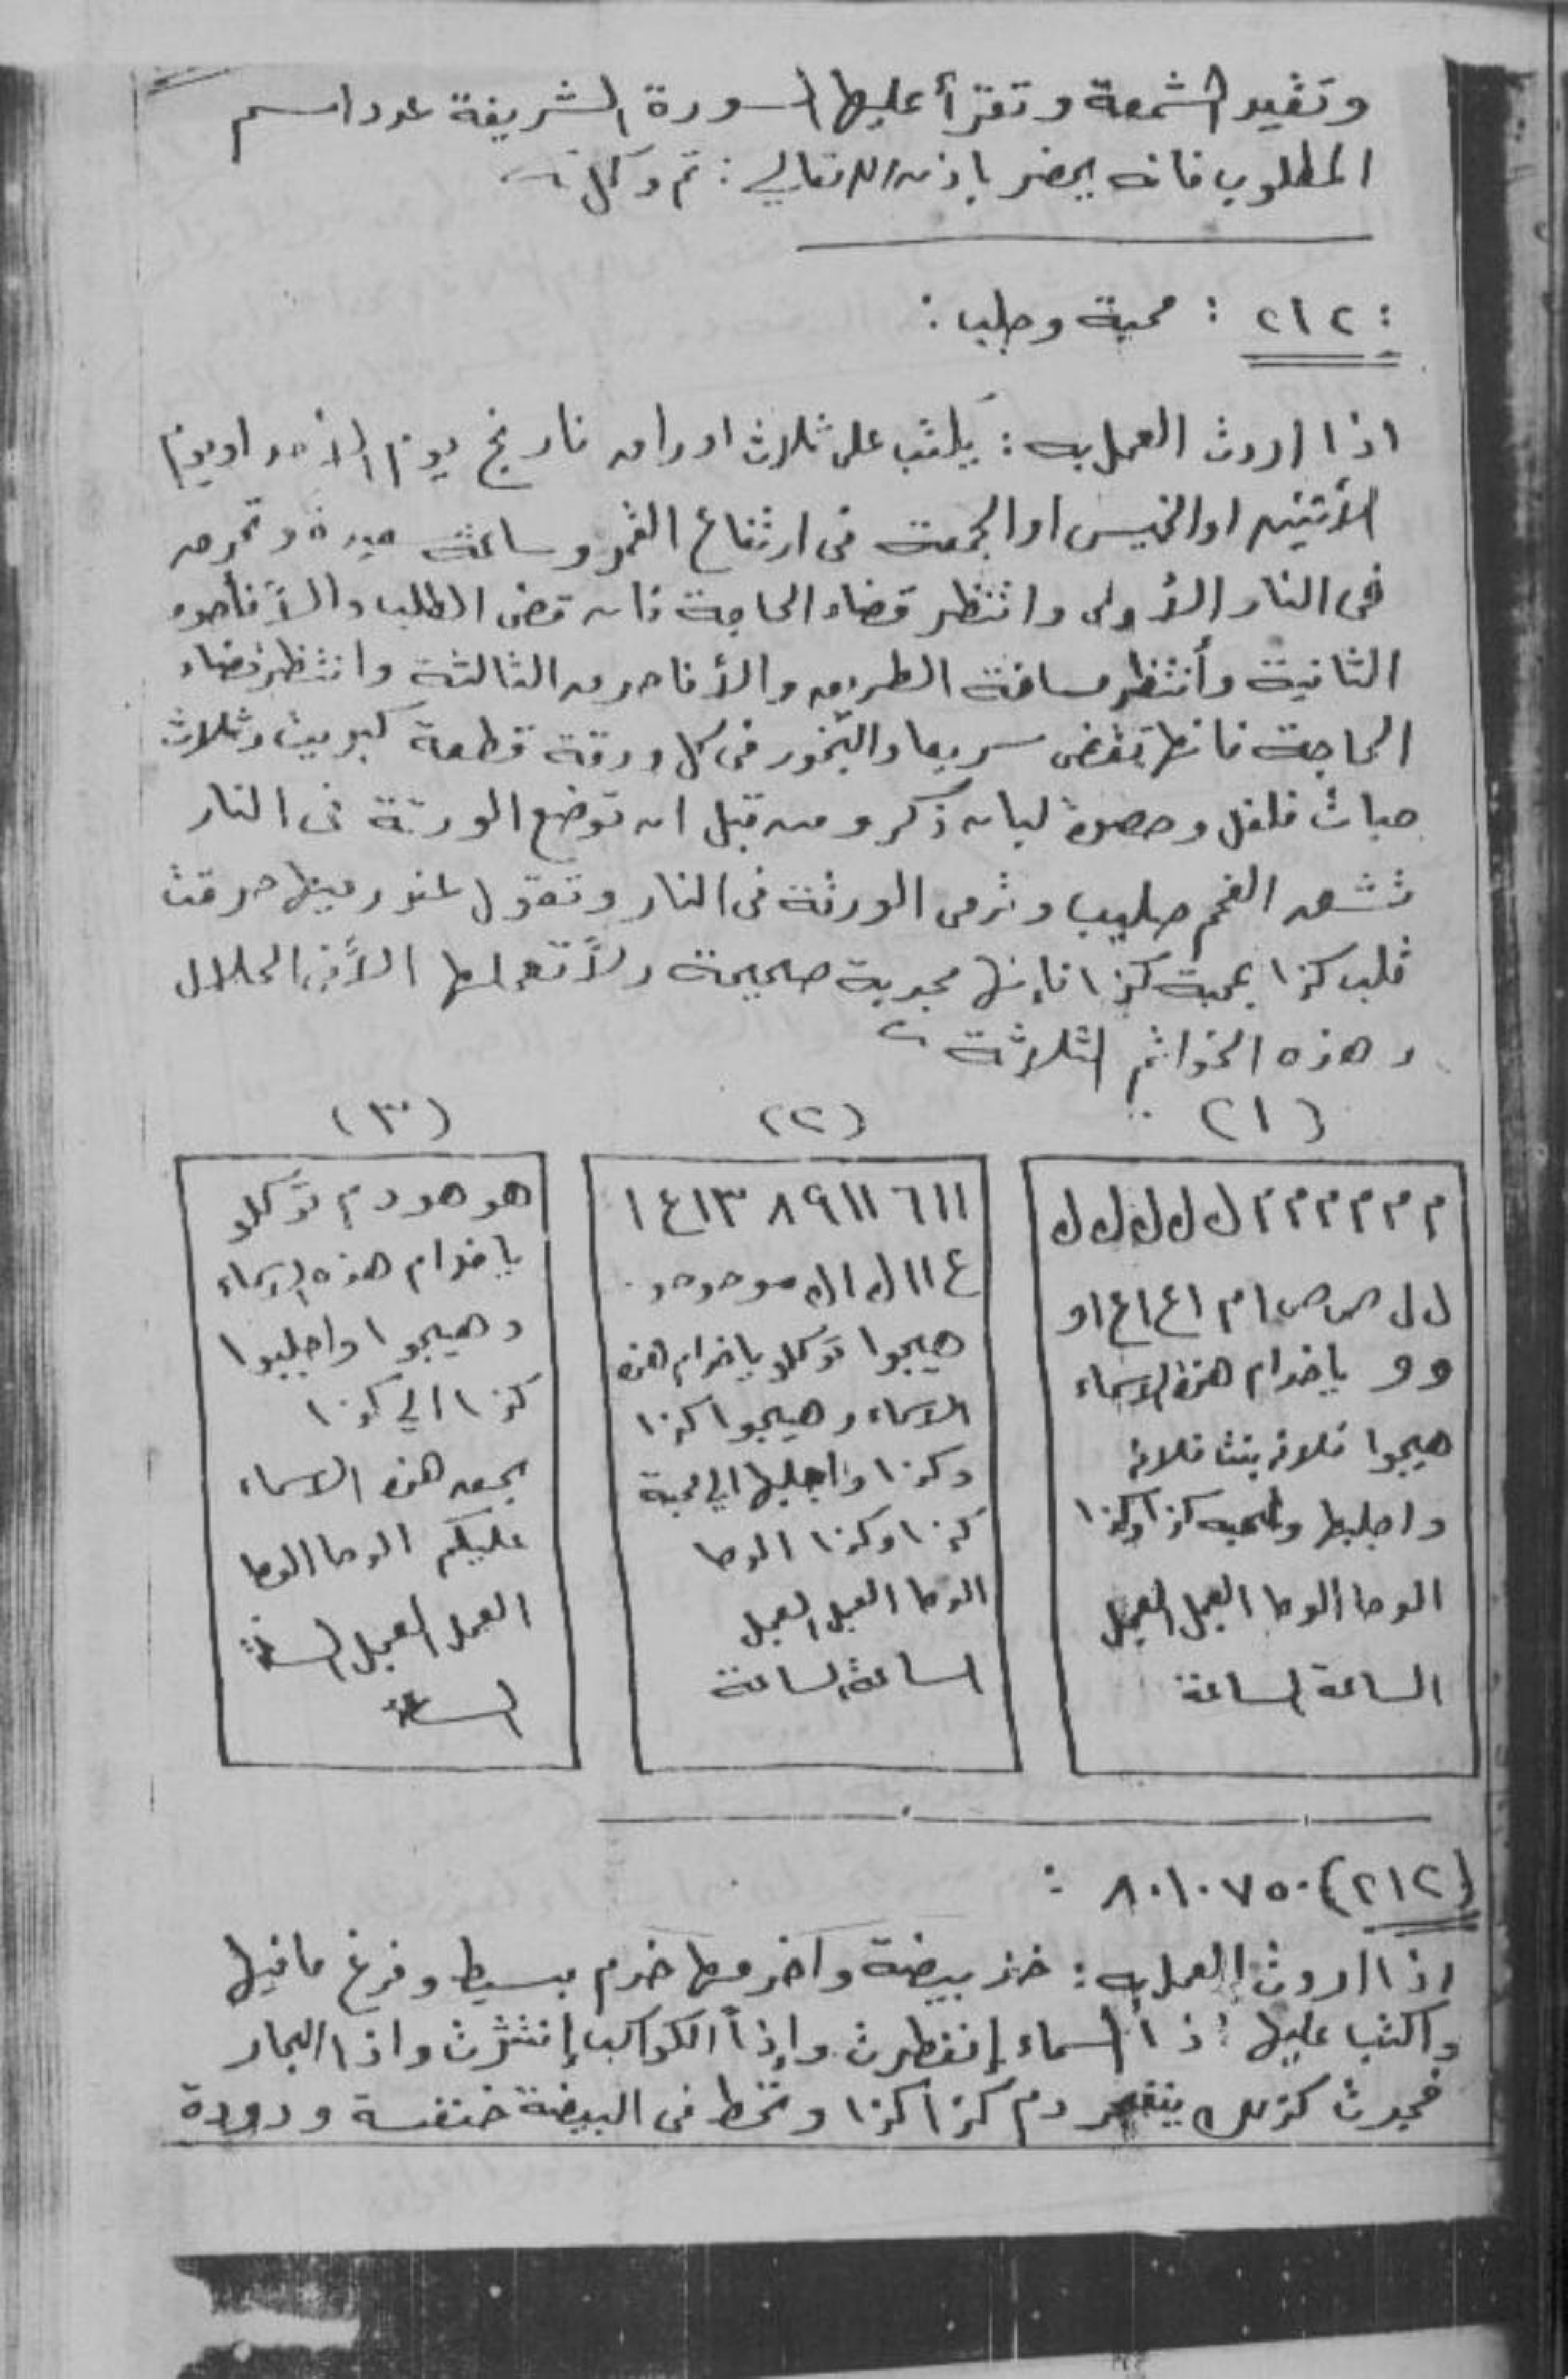 وتقيد الشمعة وتقرأ عليها السورة الشريفة عدد اسم
المطلوب فانه يحضر باذن الله تعالي : تم وكل
: ٢١٢ : محبة وجلب :
اذا اردت العمل به : يكتب على ثلاث اوراق نارنج يوم الاحد او يوم
الأثنين او الخميس او الجمعة فى ارتفاع القمر وساعة جيدة وتحرق
فى النار الأولى وانتظر قضاء الحاجة فان قضى الطلب والاّ فأحرق
الثانية وأنتظر مسافة الطريق والأ فاحرق الثالثة وانتظر قضاء
الحاجة فانها تقضى سريعا والبخور فى كل ورقة قطعة كبريت وثلاث
حبات فلفل وحصوة لبان ذكر ومن قبل ان توضع الورقة فى النار
الفحم صليب وترمى الورقة فى النار وتقول عند رميها حرقت
قلب كذا بمحبة كذا فإنها مجربة صحيحة ولاً تعملها الاً فى الحلال
وهذه الخواتم الثلاثة
(١)
م م م م م م ك ك ك ك ك
ل ل ص ص ا م ا ع ا ع ا و
و و ياخدام هذة الاسماء
هيجوا فلانه بنت فلانه
واجلبها ولمحبه كذا وكذا
الوحا الوحا العجل العجل
الساعة الساعة
(٢)
١١ ٦ ١١ ٩ ٨ ١٣ ٤ ١
ع ١١ ك ا ك
هيجوا توكلو ياخدام هذه
الاسماء وهيجوا كذا
وكذا واجلبها الي محبة
كذا وكذا الوحا
الوحا العجل العجل
الساعة الساعة
(٣)
هو هو دم توكلو
ياخدام هذه الاسماء
وهيجوا واجلبوا
كذا الي كذا
بحق هذه الاسماء
عليكم الوحا الوحا
العجل العجل الساعة
الساعة
(٢١٢) ٨٠١٠٧٥٠ :
اذا اردت العمل به : خذ بيضة واخرمها خرم بسيط وفرغ مافيها
واكتب عليها إذا السماء إنفطرت وإذا الكواكب إنتثرت واذا البحار
فجرت كذلك ينفجر دم كذا كذا وتحط فى البيضة خنفسة ودودة